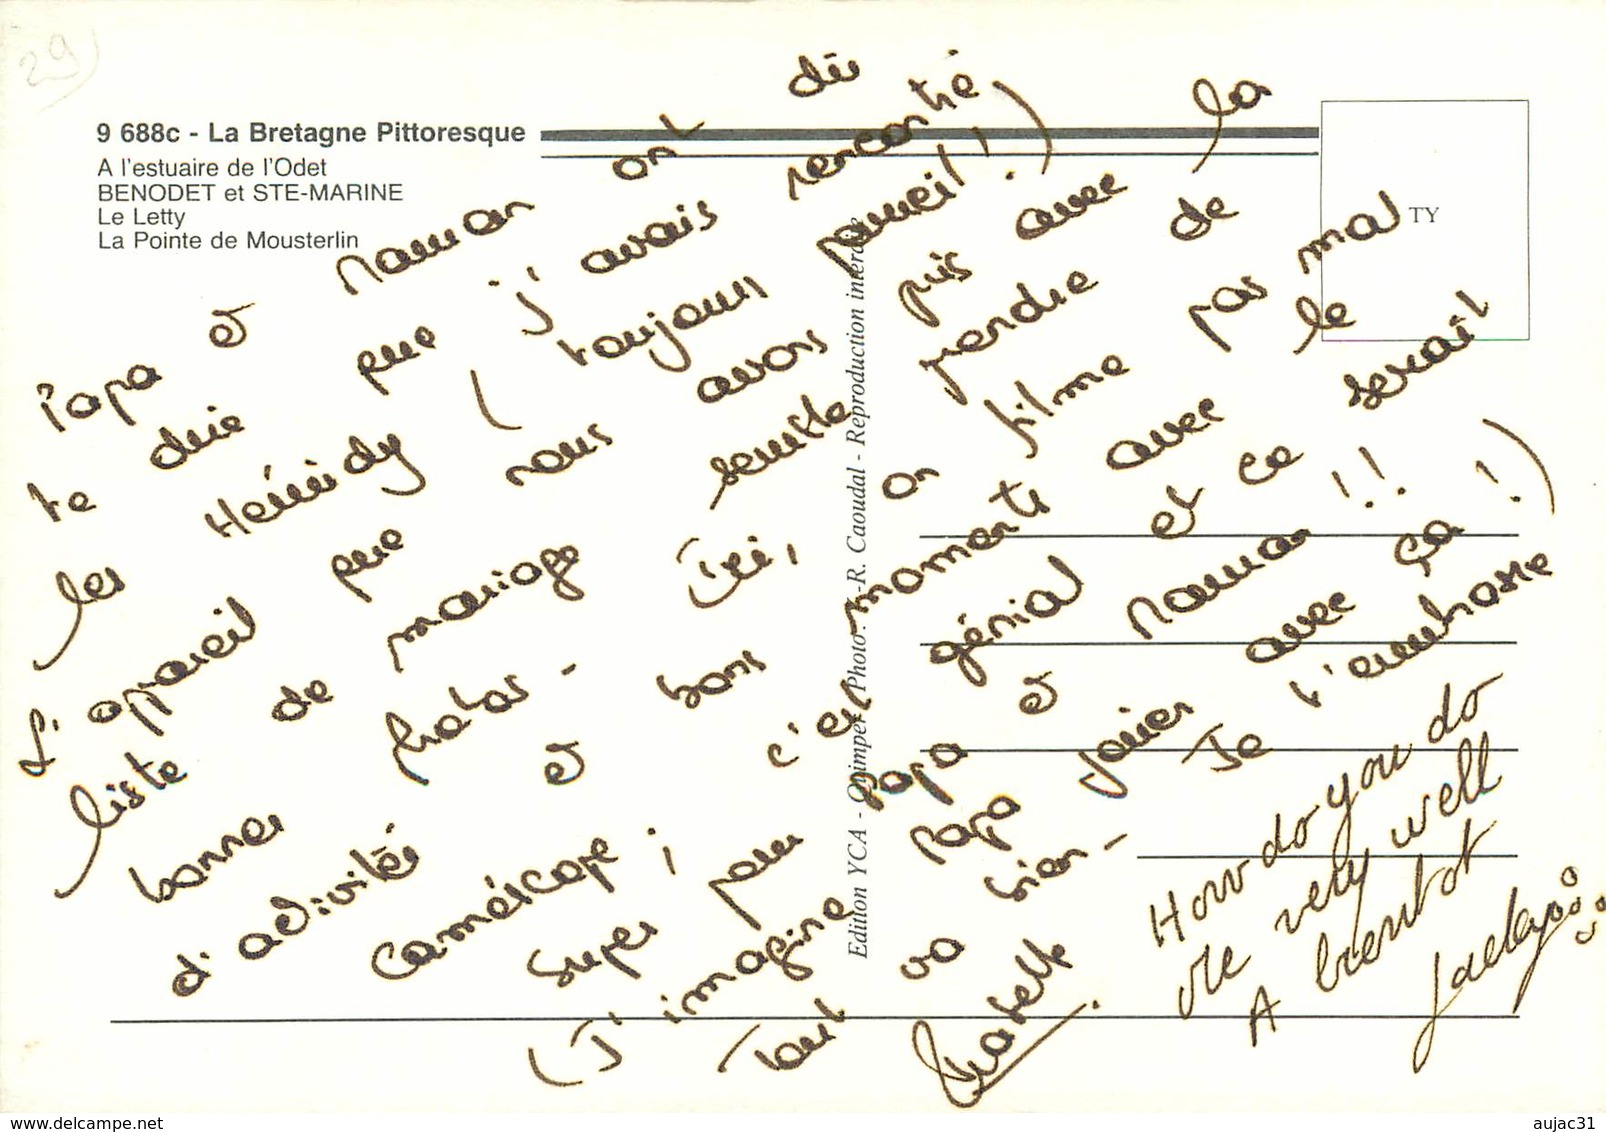 29
9 688c - La Bretagne Pittoresque
A l'estuaire de l'Odet
BENODET et STE-MARINE
Le Letty
La Pointe de Mousterlin
TY
Edition YCA - Quimper - Photo: -R. Caoudal - Reproduction interdite
Papa et Maman ont dû
te dire que j'avais rencontré
les Hémidy (toujours pareil!)
L'appareil que nous avons pris avec la
liste de mariage semble perdre de
bonnes photos - Ici, on filme pas mal
d'activités et bons moments avec le
caméscope; c'est génial et ce serait
super pour papa et Maman!!
(J'imagine Papa jouer avec ça!)
Tout va bien - Je t'embrasse
How do you do
Me very well
A bientot
aujac31